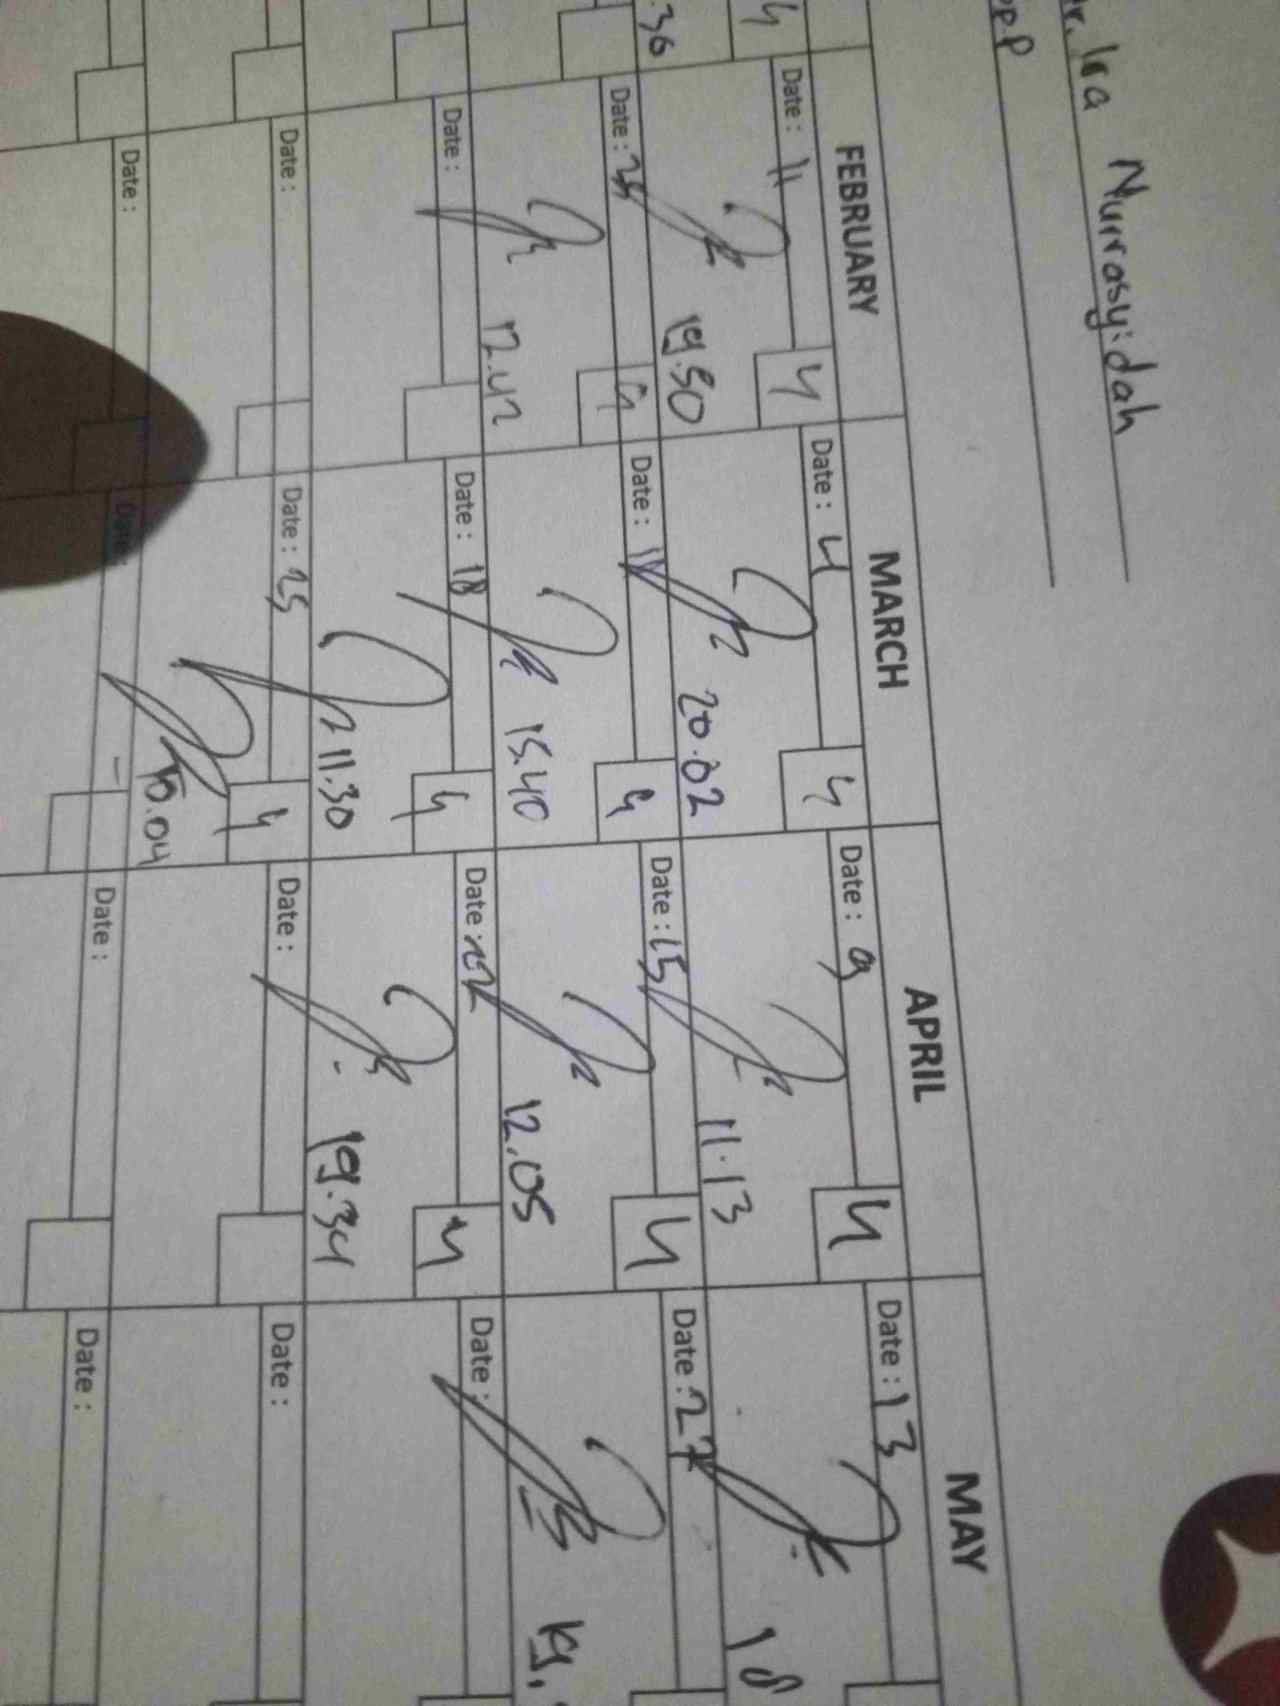 Dr. Ira Nurrasyidah
PPP
FEBRUARY MARCH APRIL MAY
4 Date : 11 4 Date : 4 4 Date : 9 4 Date : 13
.36 19.50 20.02 11.13 18
Date : 25 4 Date : 11 4 Date : 15 4 Date : 27
12.42 15.40 12.05 19.
Date : Date : 18 4 Date : 22 4 Date :
11.30 19.34
Date : Date : 25 4 Date : Date :
10.04
Date : Date : Date : Date :